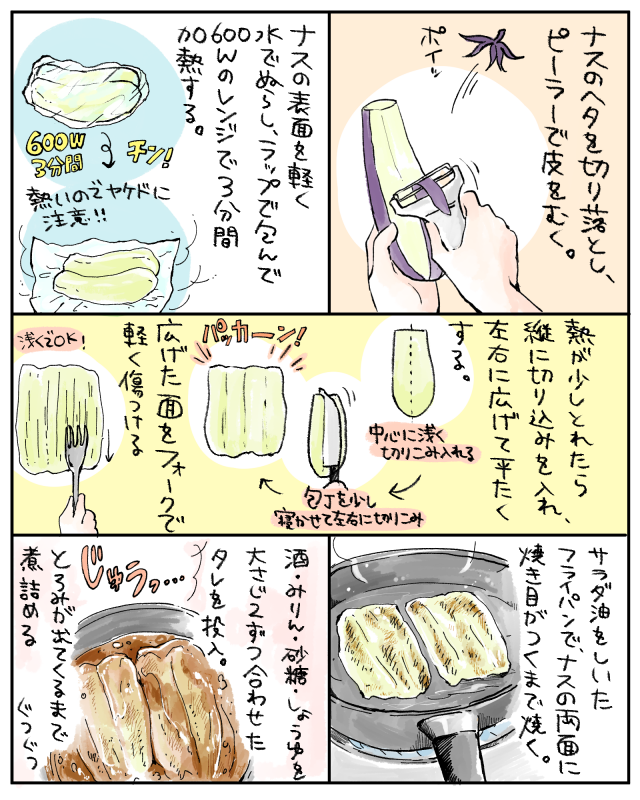 ナスのヘタを切り落とし、
ピーラーで皮をむく。
ポイッ
ナスの表面を軽く
水でぬらし、ラップで包んで
600Wのレンジで3分間
加熱する。
600W
3分間
チン!
熱いのでヤケドに
注意!!
熱が少しとれたら
縦に切り込みを入れ、
左右に広げて平たく
する。
中心に浅く
切りこみ入れる
包丁を少し
寝かせて左右に切りこみ
パッカーン!
広げた面をフォークで
軽く傷つける
浅くでOK!
サラダ油をしいた
フライパンで、ナスの両面に
焼き目がつくまで焼く。
酒・みりん・砂糖・しょうゆを
大さじ2ずつ合わせた
タレを投入。
とろみが出てくるまで
煮詰める
じゅうっ…
ぐつぐつ